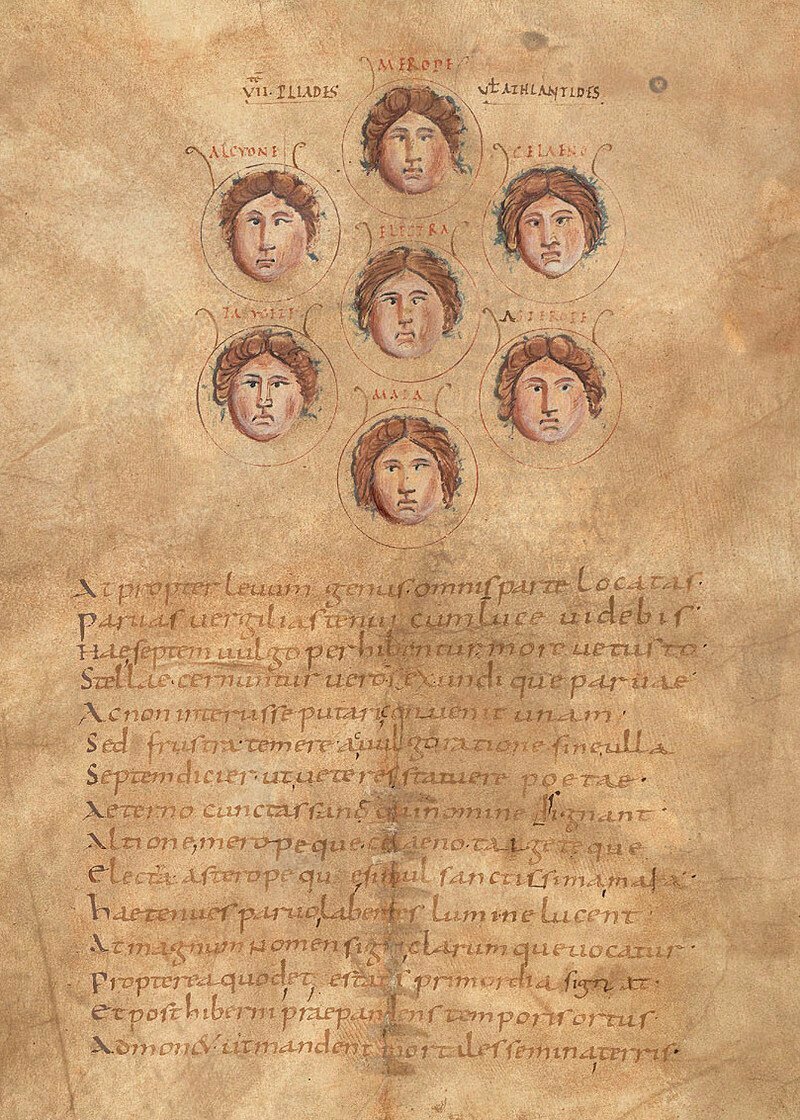 MEROPE
VII. PLIADES vt ATHLANTIDES.
ALCYONE CELAENO
ELECTRA
ASTEROPE
MAIA
At propter levum genus omnis parte locatas.
Parvas vergilias tenui cum luce videbis.
Hae septem vulgo perhibentur more vetusto.
Stellae. cernuntur vero sex undique parvae.
Ac non interisse putari convenit unam.
Sed frustra temere a vulgo ratione sine ulla
Septem dicier. ut veteres statuere poetae.
Aeterno cunctas sane qui nomine signant.
Altione, meropeque. celaeno. taigeteque
Electra. asteropeque simul sanctissima maia.
hae tenues parvo labentes lumine lucent.
At magnum nomen signi clarumque vocatur.
Propterea quod et estatis primordia signat.
Et post hiberni praepandens temporis ortus.
Admonet ut mandent mortales semina terris.